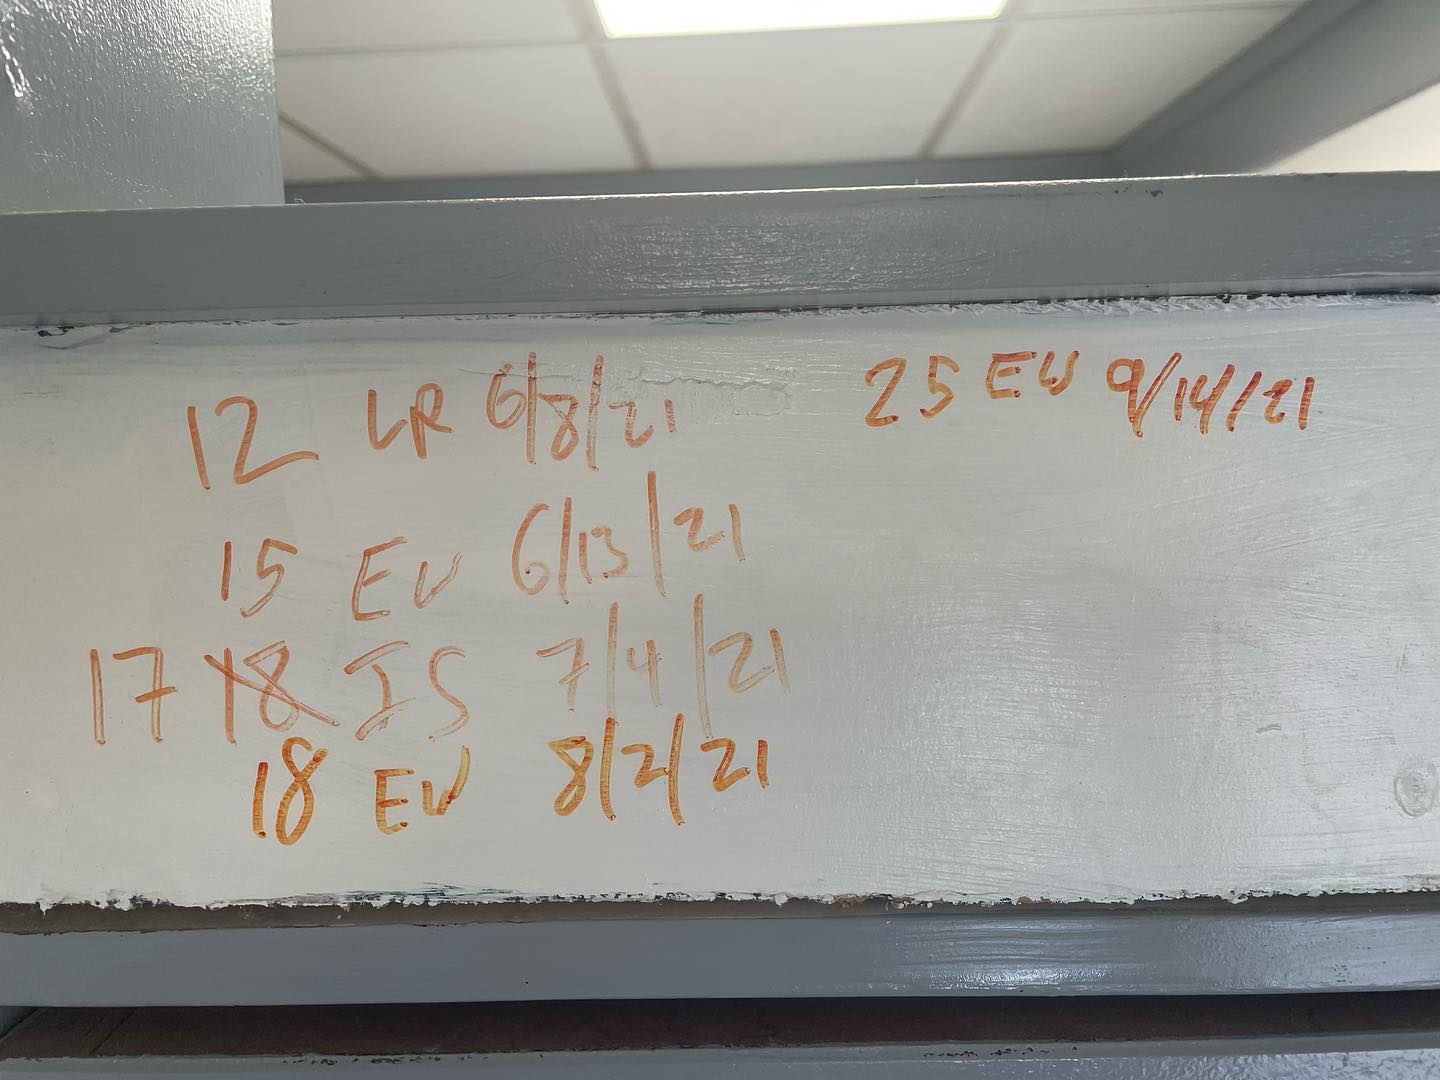 12 LR 6/8/21
15 EW 6/13/21
17 18 IS 7/4/21
18 EW 8/2/21
25 EW 9/14/21